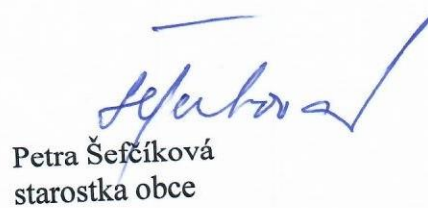 Petra Šefčíková
starostka obce